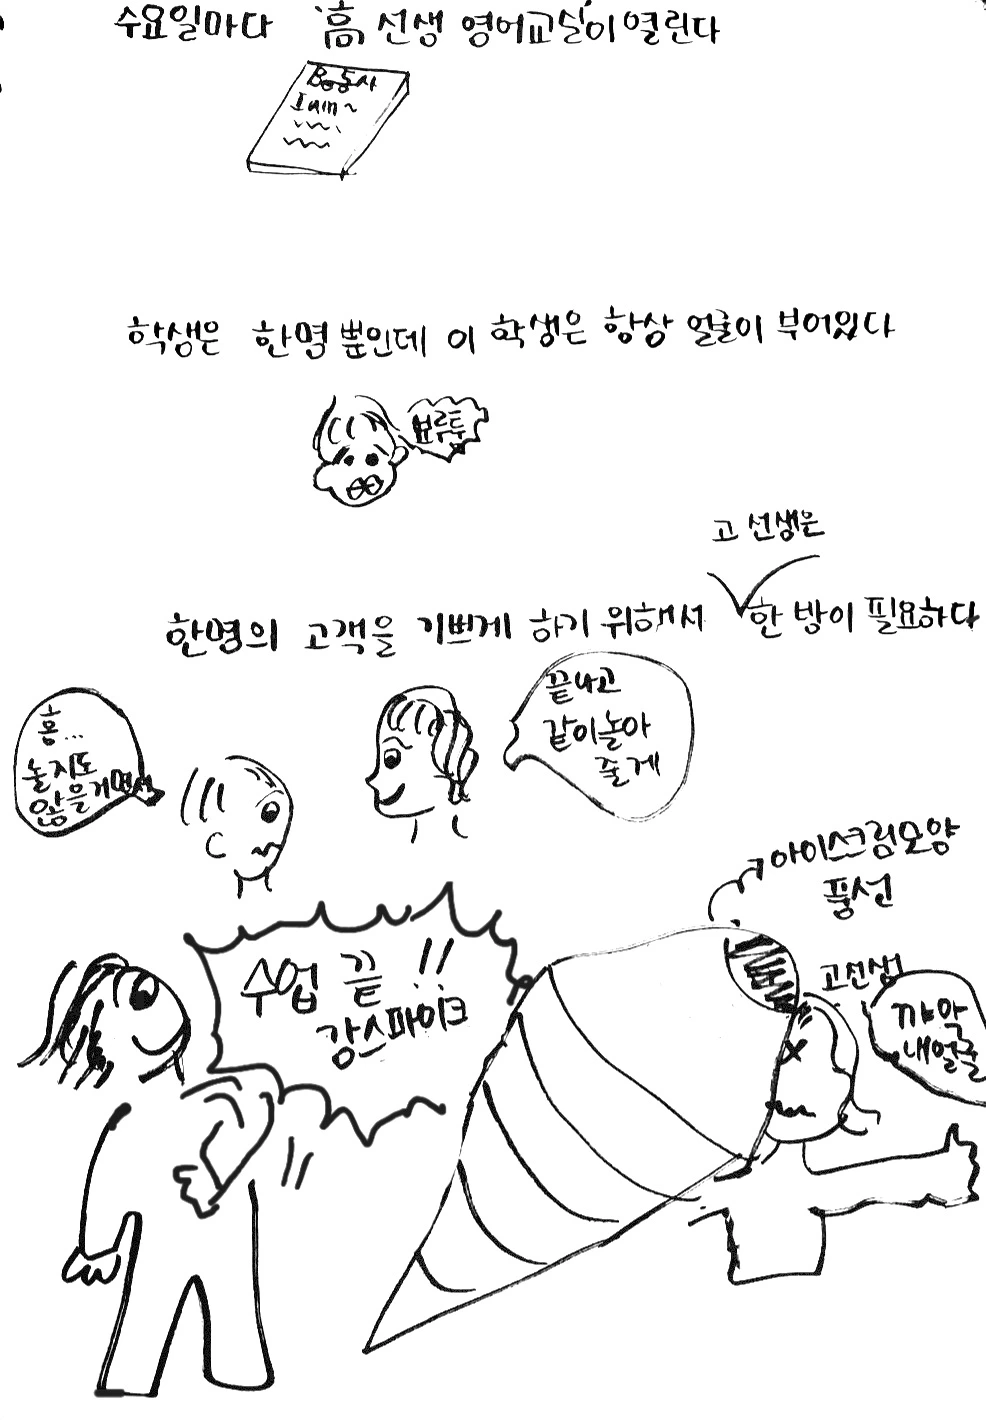 수요일마다 高 선생 영어교실이 열린다
Be동사
I am ~
학생은 한명 뿐인데 이 학생은 항상 얼굴이 부어있다
뾰루퉁
고 선생은
한명의 고객을 기쁘게 하기 위해서 한 방이 필요하다
흥...
놀지도
않을거면서
끝나고
같이놀아
줄게
아이스크림모양
풍선
수업 끝!!
강스파이크
고선생
꺄악
내얼굴